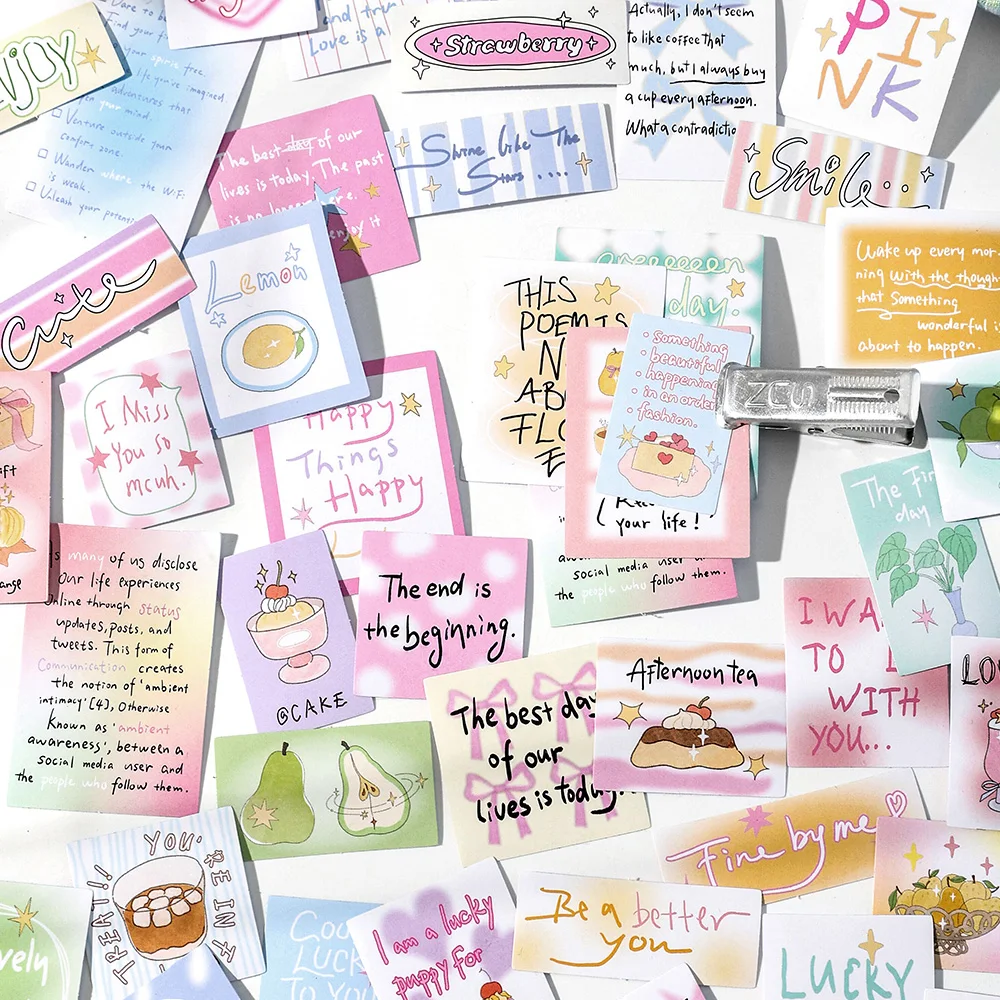 Enjoy
and tru
Love is a
Strawberry
Actually, I don't seem
to like coffee that
much, but I always buy
a cup every afternoon.
What a contradictio
PI
NK
spirit free.
life you've imagined.
adventures that
your mind.
Venture outside your
comfort zone.
Wander where the WiFi
is weak.
Unleash your potent
The best day of our
lives is today. The past
is no longer here.
enjoy it
Shine like The
Stars ....
Smile..
Wake up every mor-
ning with the though
that Something
wonderful i
about to happen.
Cute
Lemon
greeeeeen
day.
THIS
POEM IS
N
AB
FLO
• something
• beautiful
• happening
• in an order
• fashion.
NCS
your life!
social media user
the people who follow them.
I Miss
You so
mcuh.
Happy
Things
Happy
The Fir
day
many of us disclose
Our life experiences
Online through status
updates, posts, and
tweets. This form of
Communication creates
the notion of 'ambient
intimacy' [4], Otherwise
Known as 'ambient
awareness', between a
social media user and
the people who follow them.
@CAKE
The end is
the beginning.
The best day
of our
lives is today.
Afternoon tea
I WA
TO L
WITH
YOU...
LO
Fine by me
YOU'RE IN F
TREAT!!
vely
Good
LUCK
TO YOU
I am a lucky
puppy for
Be a better
you
LUCKY